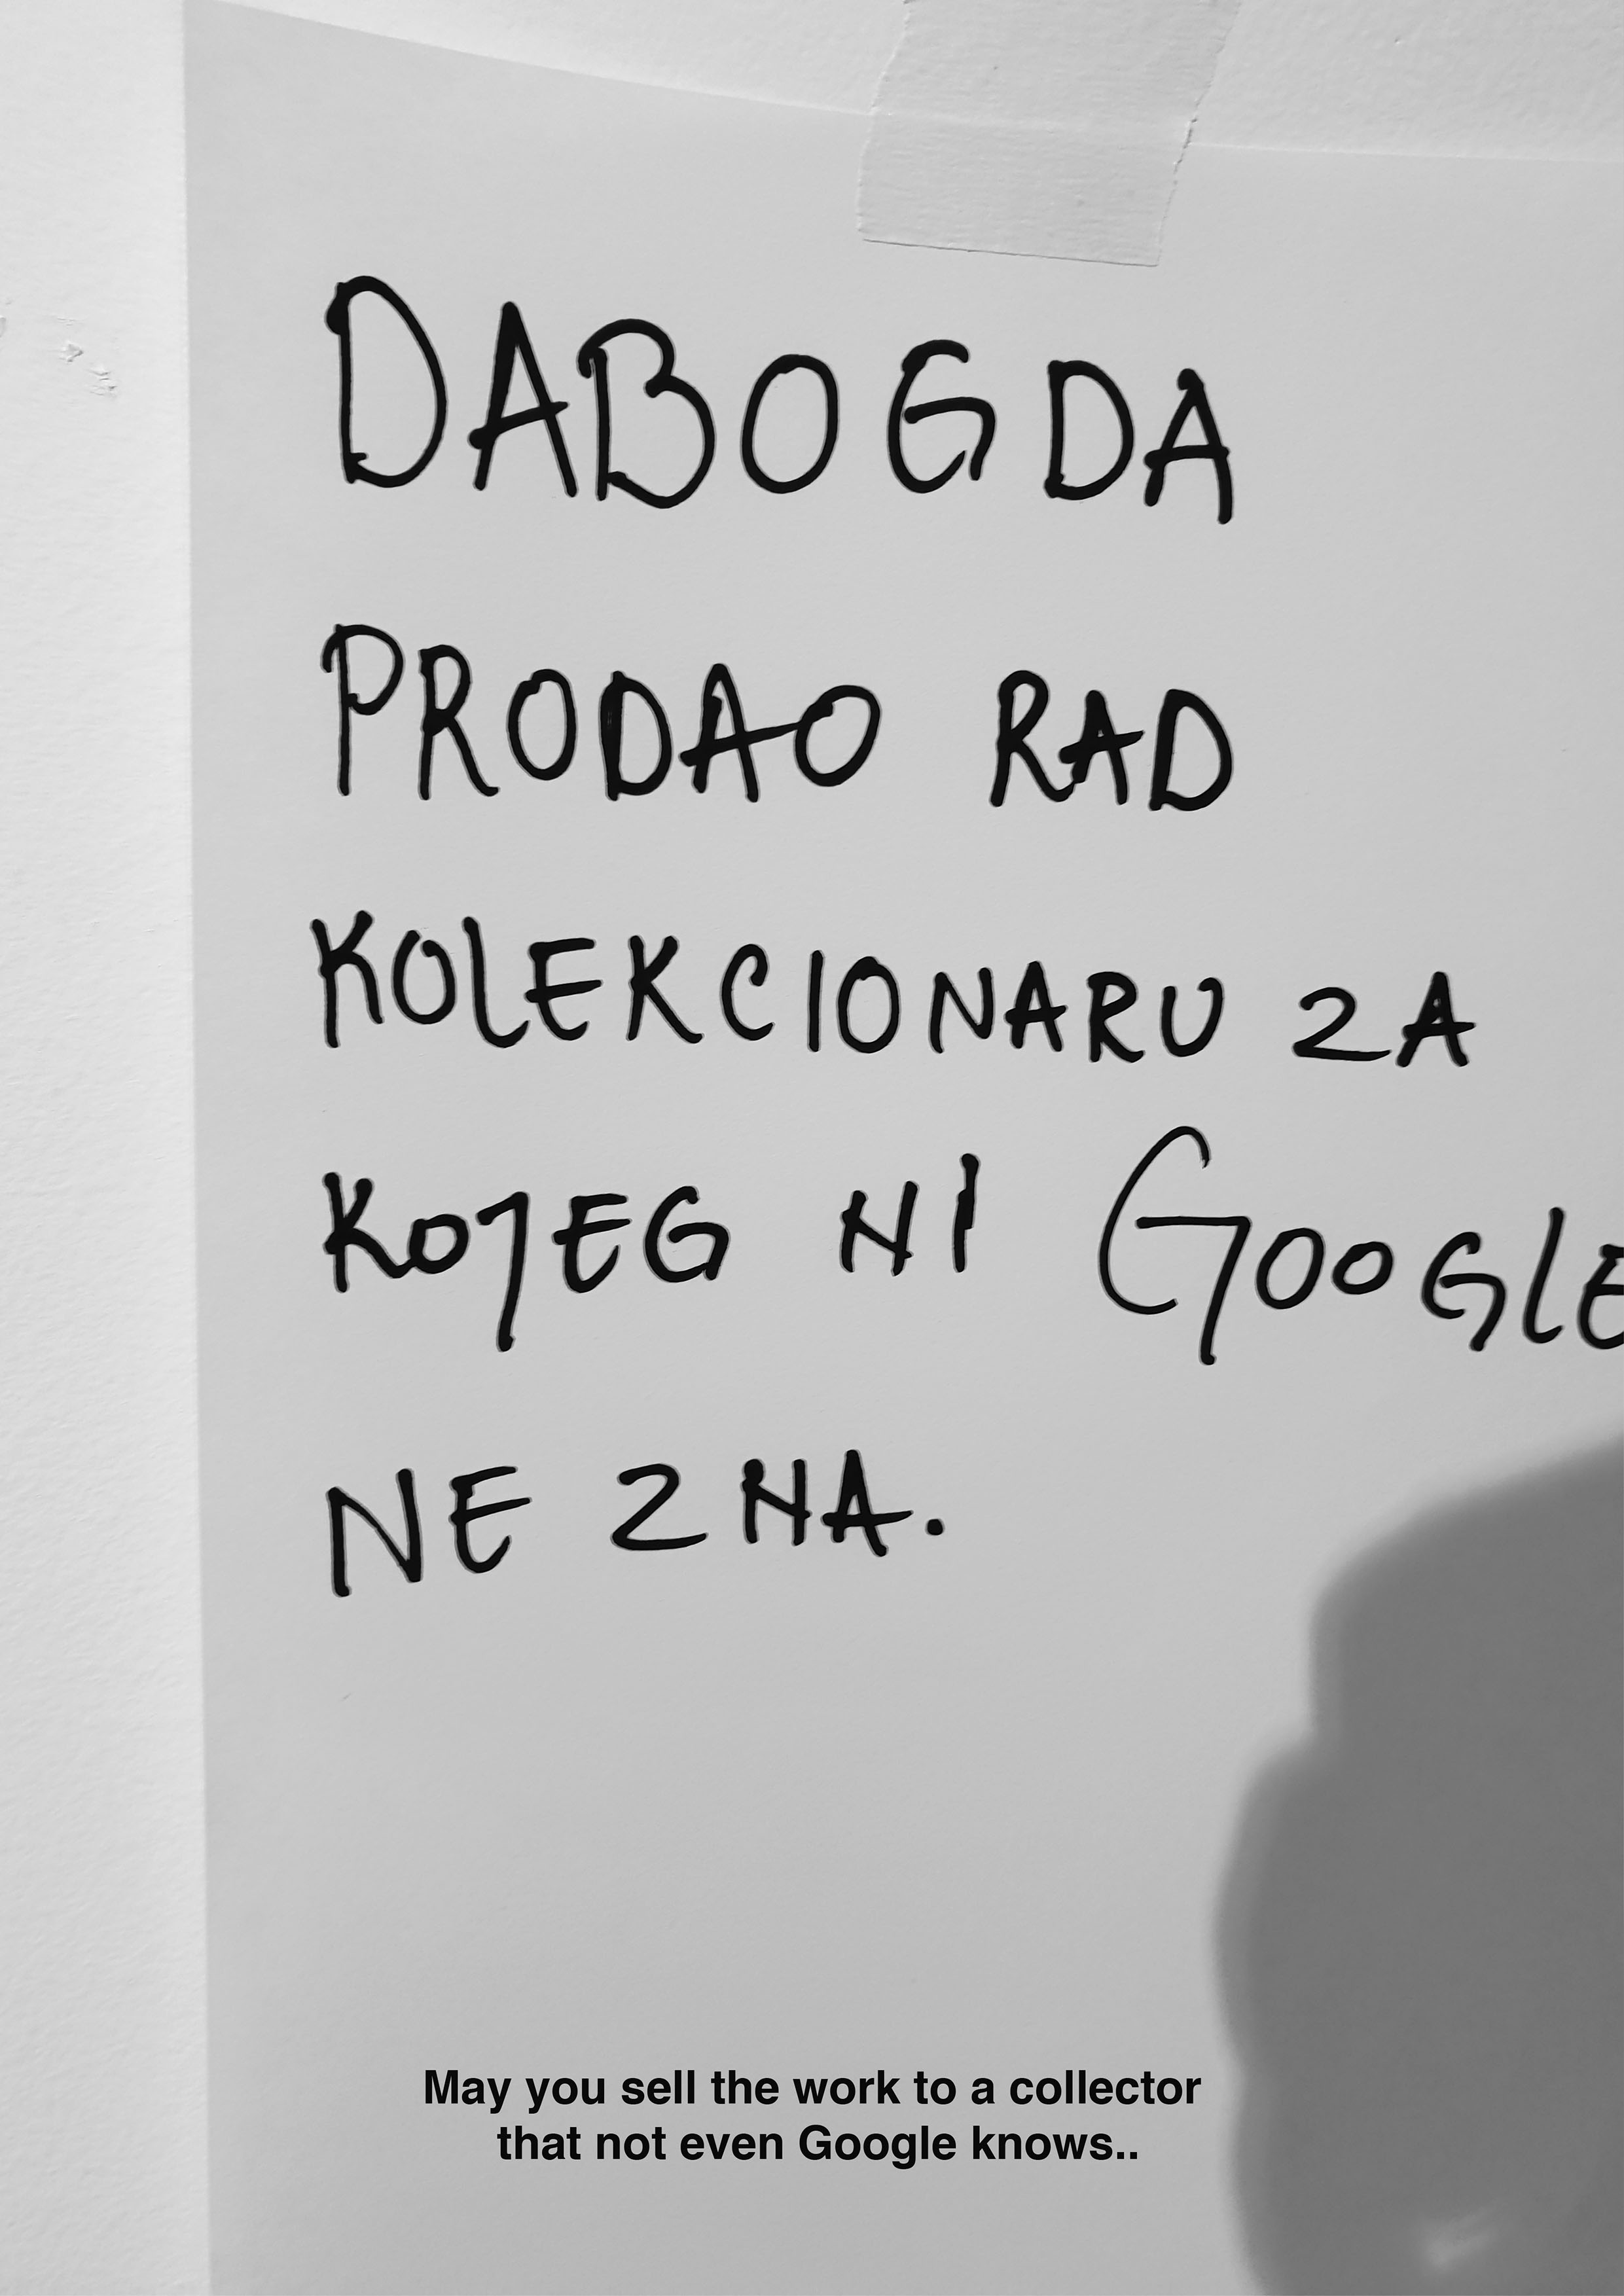 DABOGDA
PRODAO RAD
KOLEKCIONARU ZA
KOJEG NI GOOGLE
NE ZNA.
May you sell the work to a collector
that not even Google knows..